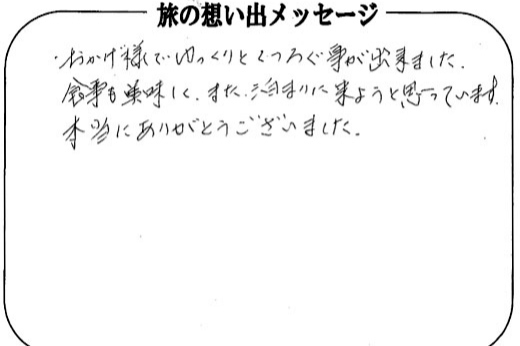 旅の想い出メッセージ
・おかげ様でゆっくりとくつろぐ事が出来ました。
食事も美味しく、また、泊まりに来ようと思っています。
本当にありがとうございました。